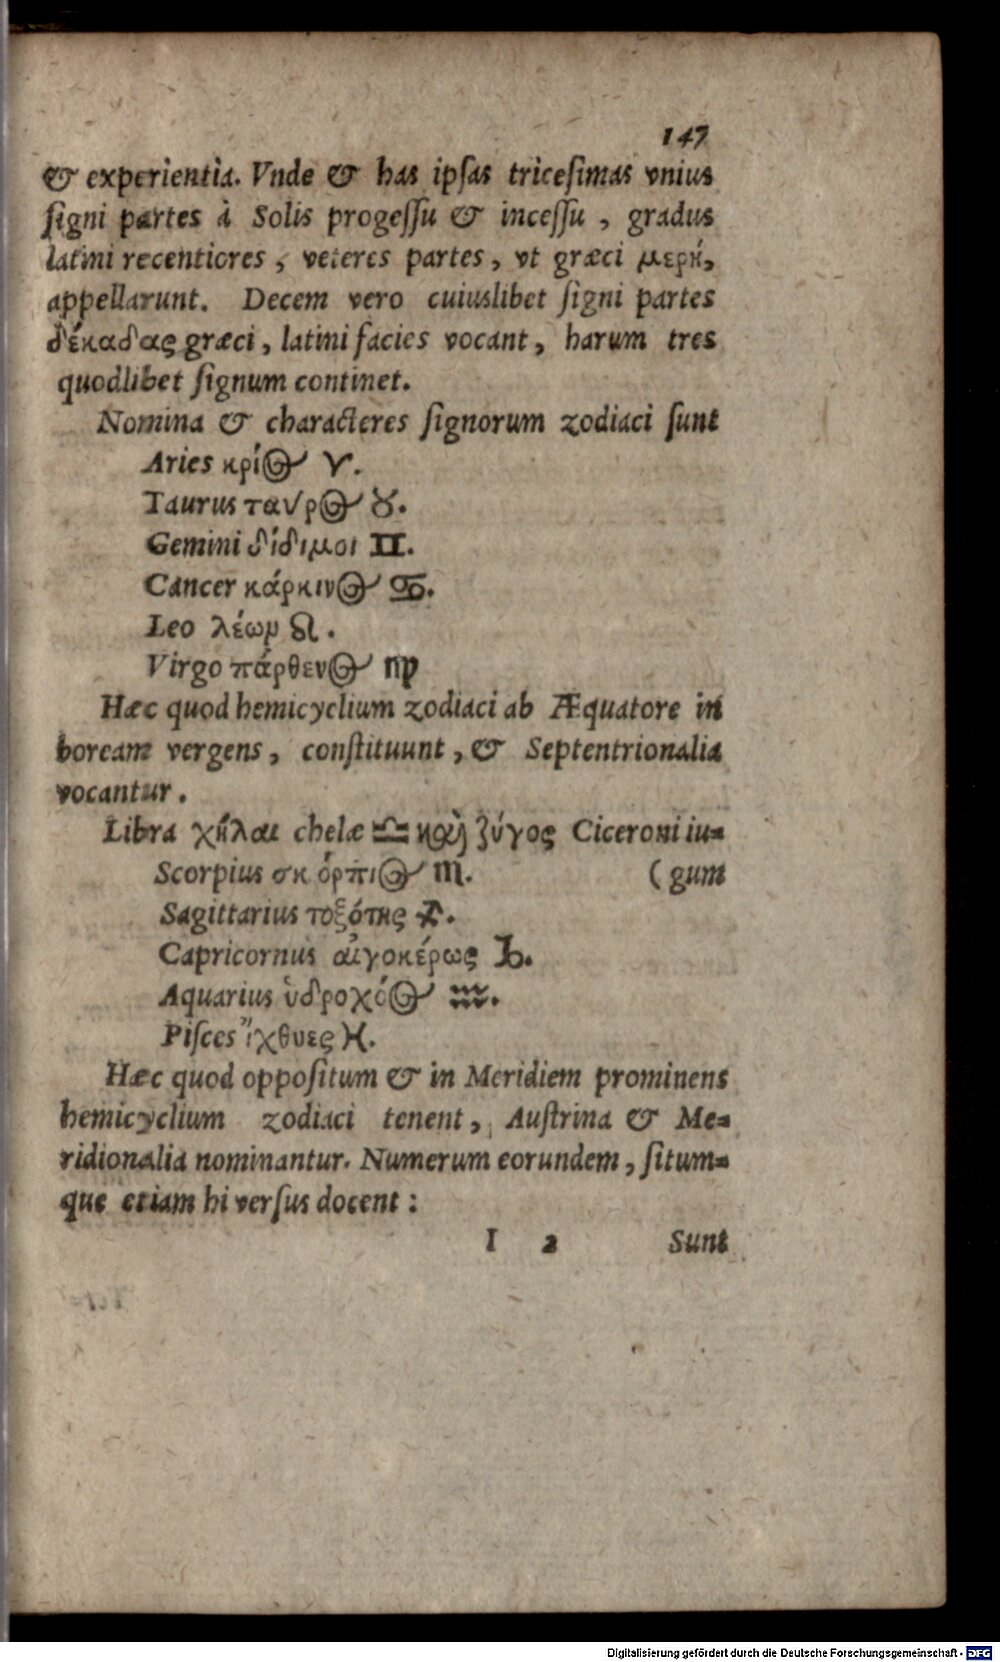 147
& experientia. Vnde & has ipsas tricesimas vnius
signi partes à Solis progessu & incessu, gradus
latini recentiores, veteres partes, vt græci μερή,
appellarunt. Decem vero cuiuslibet signi partes
δέκαδας græci, latini facies vocant, harum tres
quodlibet signum continet.
Nomina & characteres signorum zodiaci sunt
Aries κρίος ♈.
Taurus ταυρος ♉.
Gemini δίδιμοι ♊.
Cancer κάρκινος ♋.
Leo λέωμ ♌.
Virgo πάρθενος ♍
Hæc quod hemicyclium zodiaci ab Æquatore in
boream vergens, constituunt, & Septentrionalia
vocantur.
Libra χῆλαι chelæ ♎ καὶ ζύγος Ciceroni iu=
Scorpius σκ όρπιος ♏. (gum
Sagittarius τοξότης ♐.
Capricornus αἰγοκέρως ♑.
Aquarius ὑδροχόος ♒.
Pisces ἴχθυες ♓.
Hæc quod oppositum & in Meridiem prominens
hemicyclium zodiaci tenent, Austrina & Me=
ridionalia nominantur. Numerum eorundem, situm=
que etiam hi versus docent:
I 2 Sunt
Digitalisierung gefördert durch die Deutsche Forschungsgemeinschaft - DFG